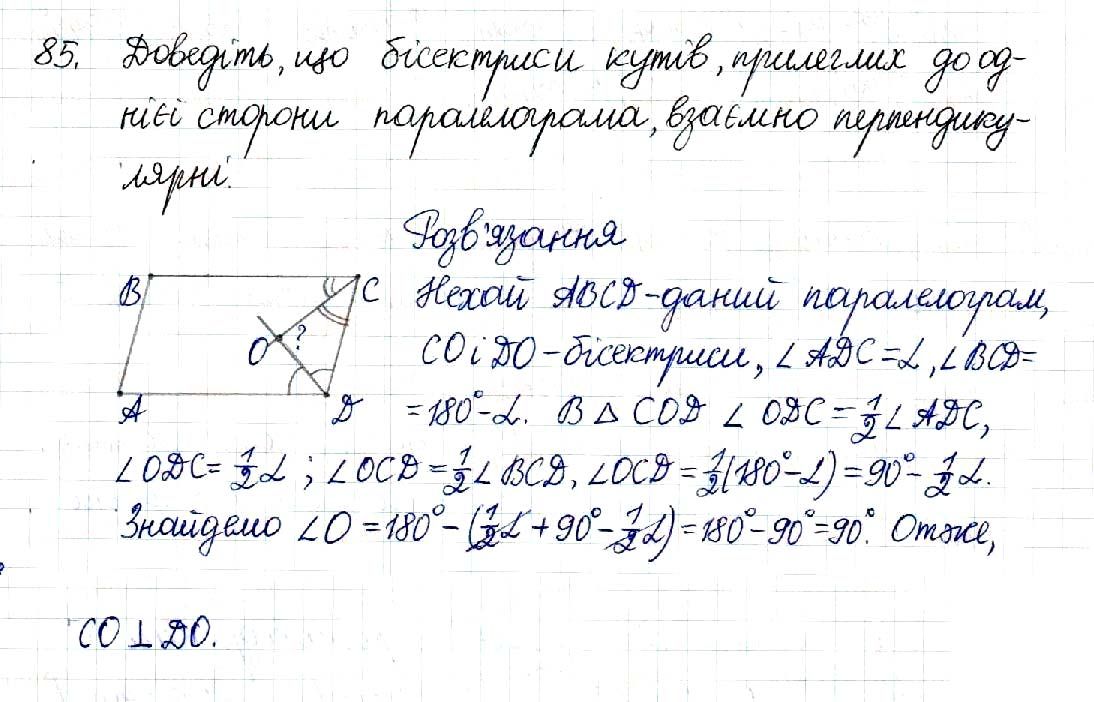 85. Доведіть, що бісектриси кутів, прилеглих до од-
нієї сторони паралелограма, взаємно перпендику-
лярні.
Розв'язання
B C Нехай ABCD - даний паралелограм,
O ? CO і DO - бісектриси, ∠ADC = α, ∠BCD =
A D = 180° - α. В △ COD ∠ ODC = 1/2 ∠ ADC,
∠ODC = 1/2 α ; ∠OCD = 1/2 ∠ BCD, ∠OCD = 1/2 (180° - α) = 90° - 1/2 α.
Знайдемо ∠O = 180° - (1/2 α + 90° - 1/2 α) = 180° - 90° = 90°. Отже,
CO ⊥ DO.